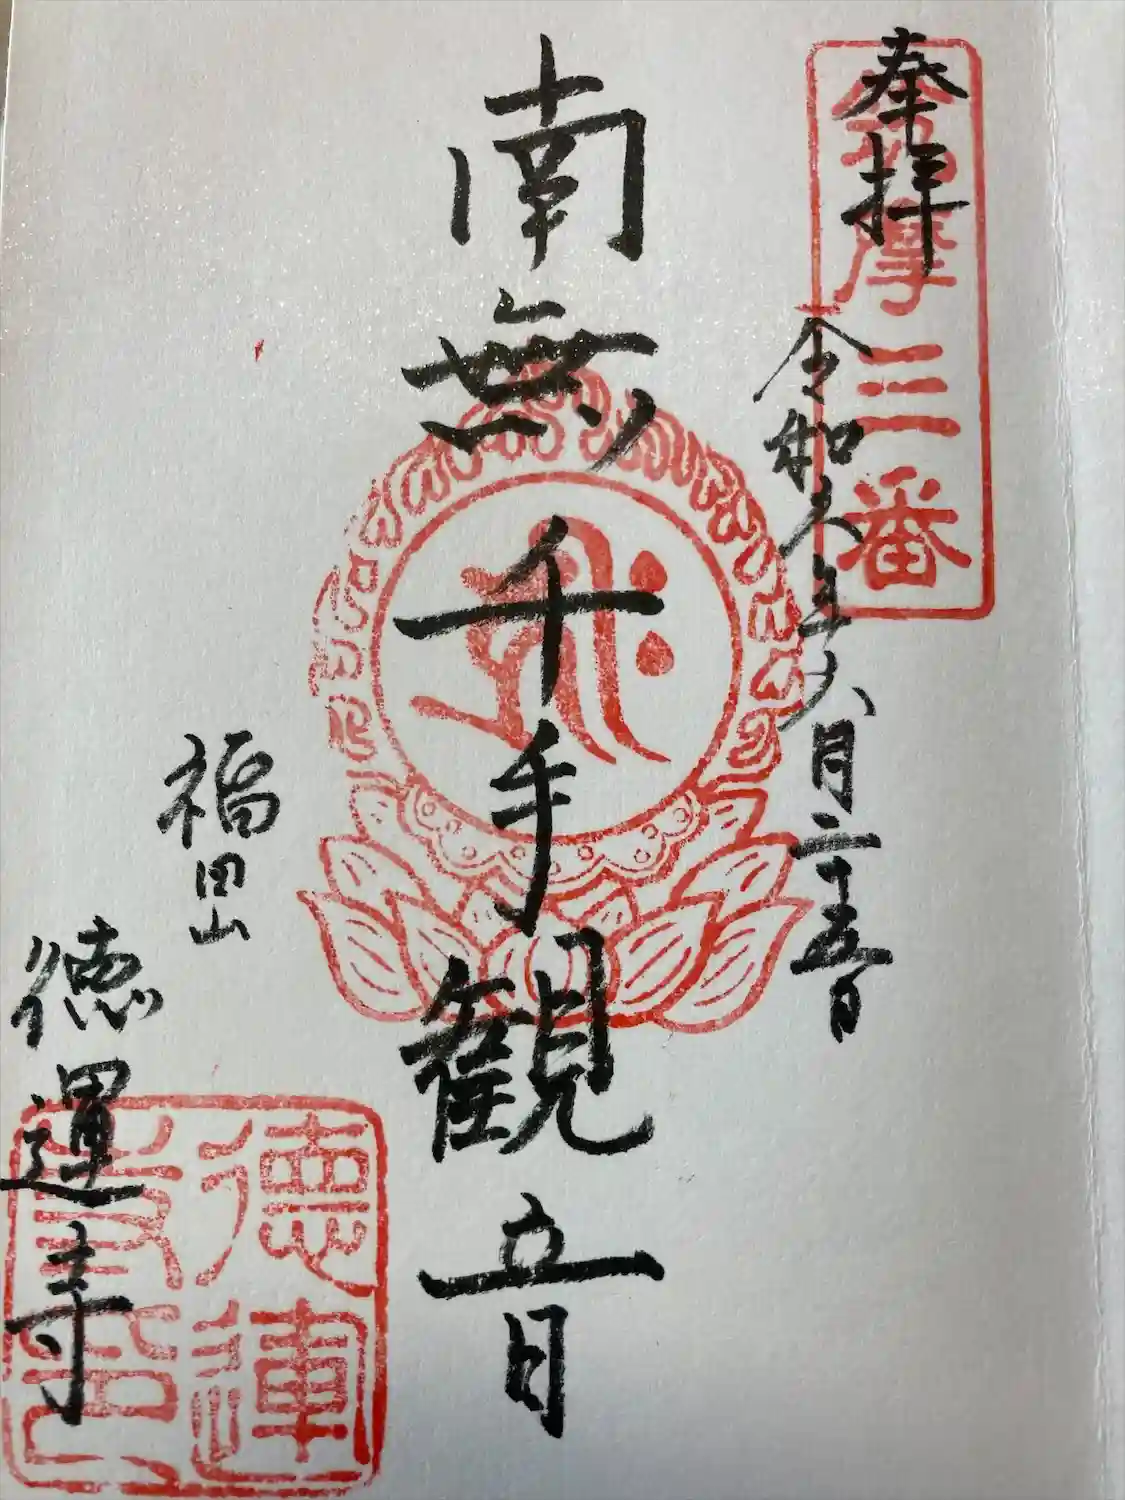 筑摩三番
奉拝
令和六年六月二十五日
南無千手観音
福田山
徳運寺
徳運
寺印